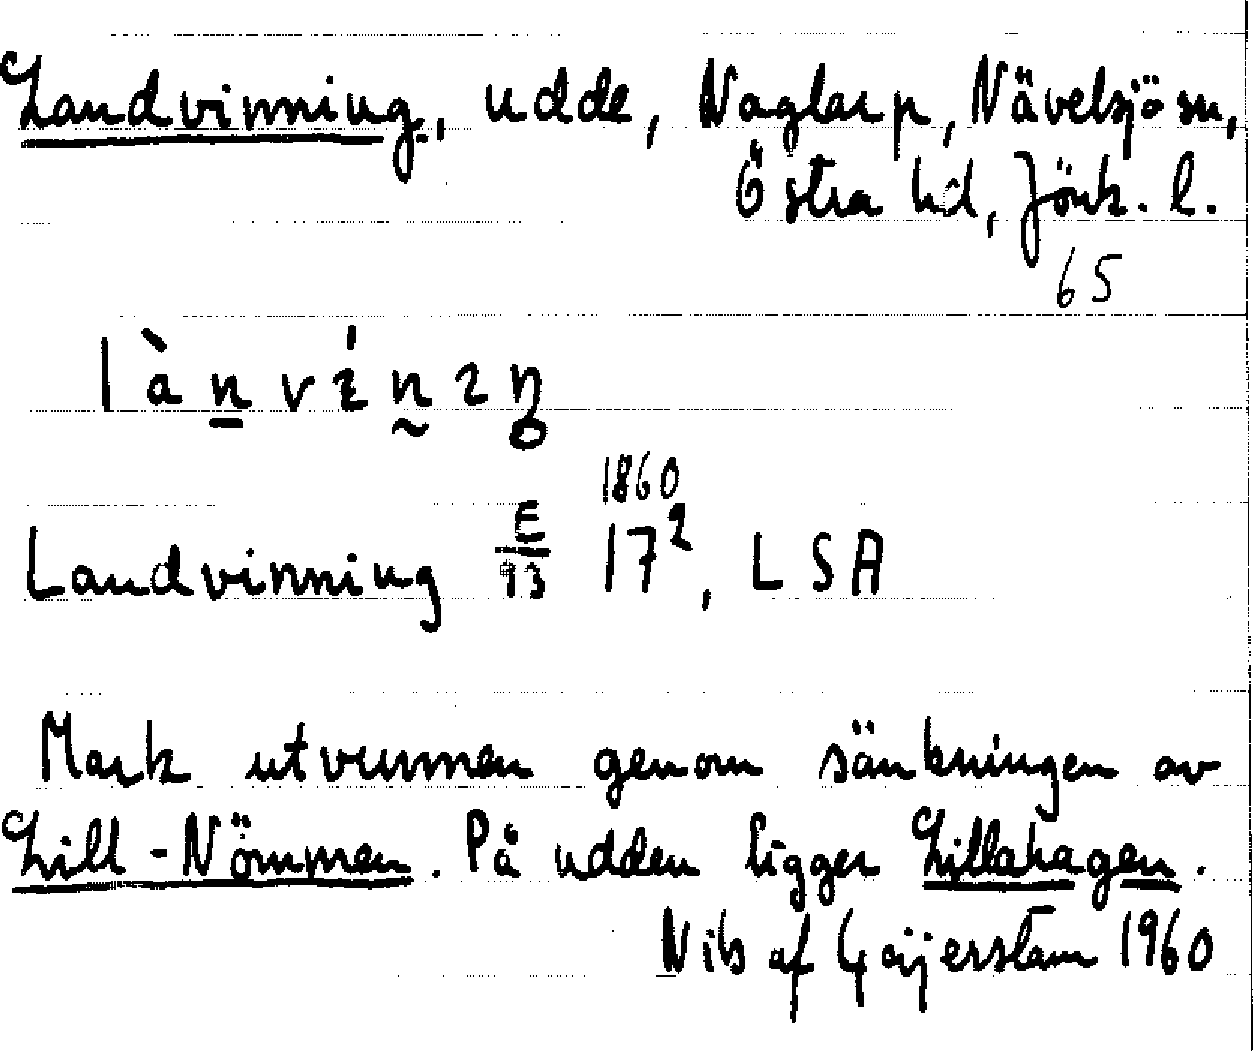 Landvinning, udde, Naglarp, Nävelsjö sn,
Östra hd, Jönk. l.
65
Landvinning E/93 1860 17², LSA
Mark utvunnen genom sänkningen av
Lill-Nömmen. På udden ligger Lillahagen.
Nils af Geijerstam 1960